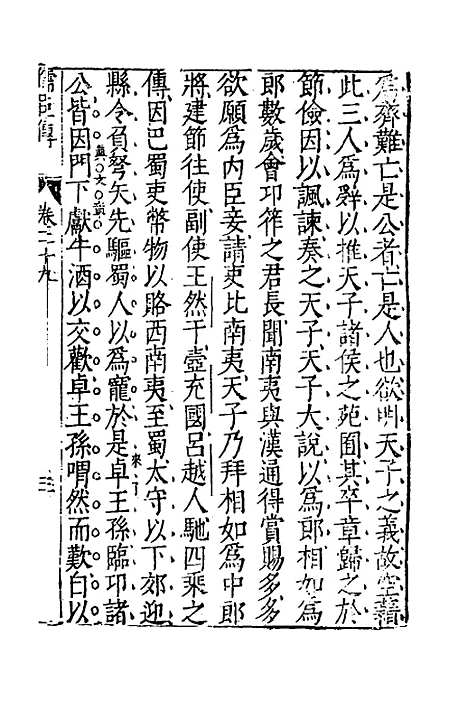 爲齊難亡是公者亡是人也欲明天子之義故空藉
此三人爲辭以推天子諸侯之苑囿其卒章歸之於
節儉因以諷諫奏之天子天子大說以爲郎相如爲
郎數歲會卭筰之君長聞南夷與漢通得賞賜多多
欲願爲内臣妾請吏比南夷天子乃拜相如爲中郎
將建節往使副使王然于壺充國呂越人馳四乗之
傳因巴蜀吏幣物以賂西南夷至蜀太守以下郊迎
縣令負弩矢先驅蜀人以爲寵於是卓王孫臨卭諸
公皆因門下獻牛酒以交歡卓王孫喟然而歎自以
卷二十九
三